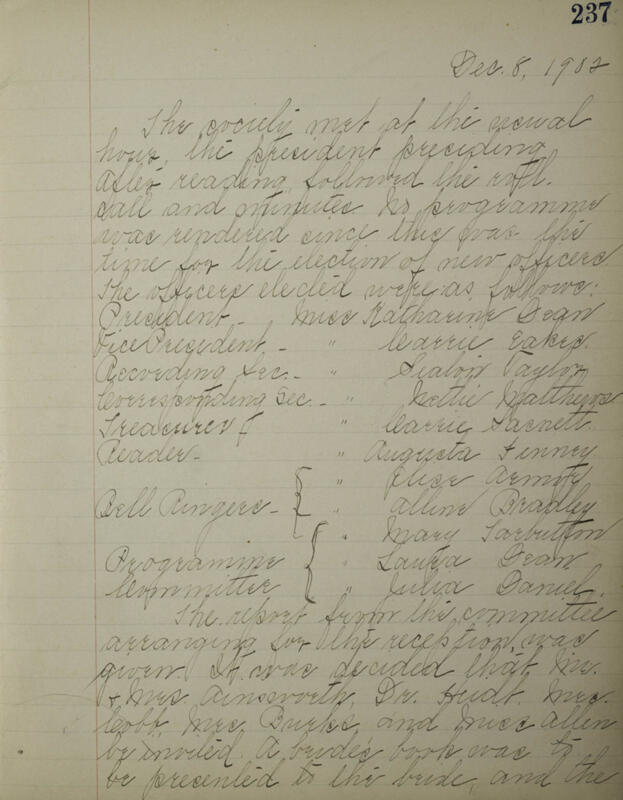 237
Dec. 8, 1902
The society met at the usual
hour, the president presiding.
After reading, followed the roll.
call and minutes. No programme
was rendered since this was the
time for the election of new officers.
The officers elected were as follows:
President - Miss Katharine Dean
Vice President - " Carrie Eakes.
Recording Sec. - " Taylor
Corresponding Sec. - " Nettie Matthews
Treasurer " Carrie Sackett.
Reader - " Augusta Finney
" Elise Armor
Bell Ringers - " Alline Bradley
" Mary Tarbutton
Programme " Laura Dean
Committee " Julia Daniel.
The report from the committee
arranging for the reception, was
given. It was decided that Mr.
& Mrs. Ainsworth, Dr. Mrs.
Cobb, Mrs. Burks, and Miss Allen
be invited. A bride's book was to
be presented to the bride, and the